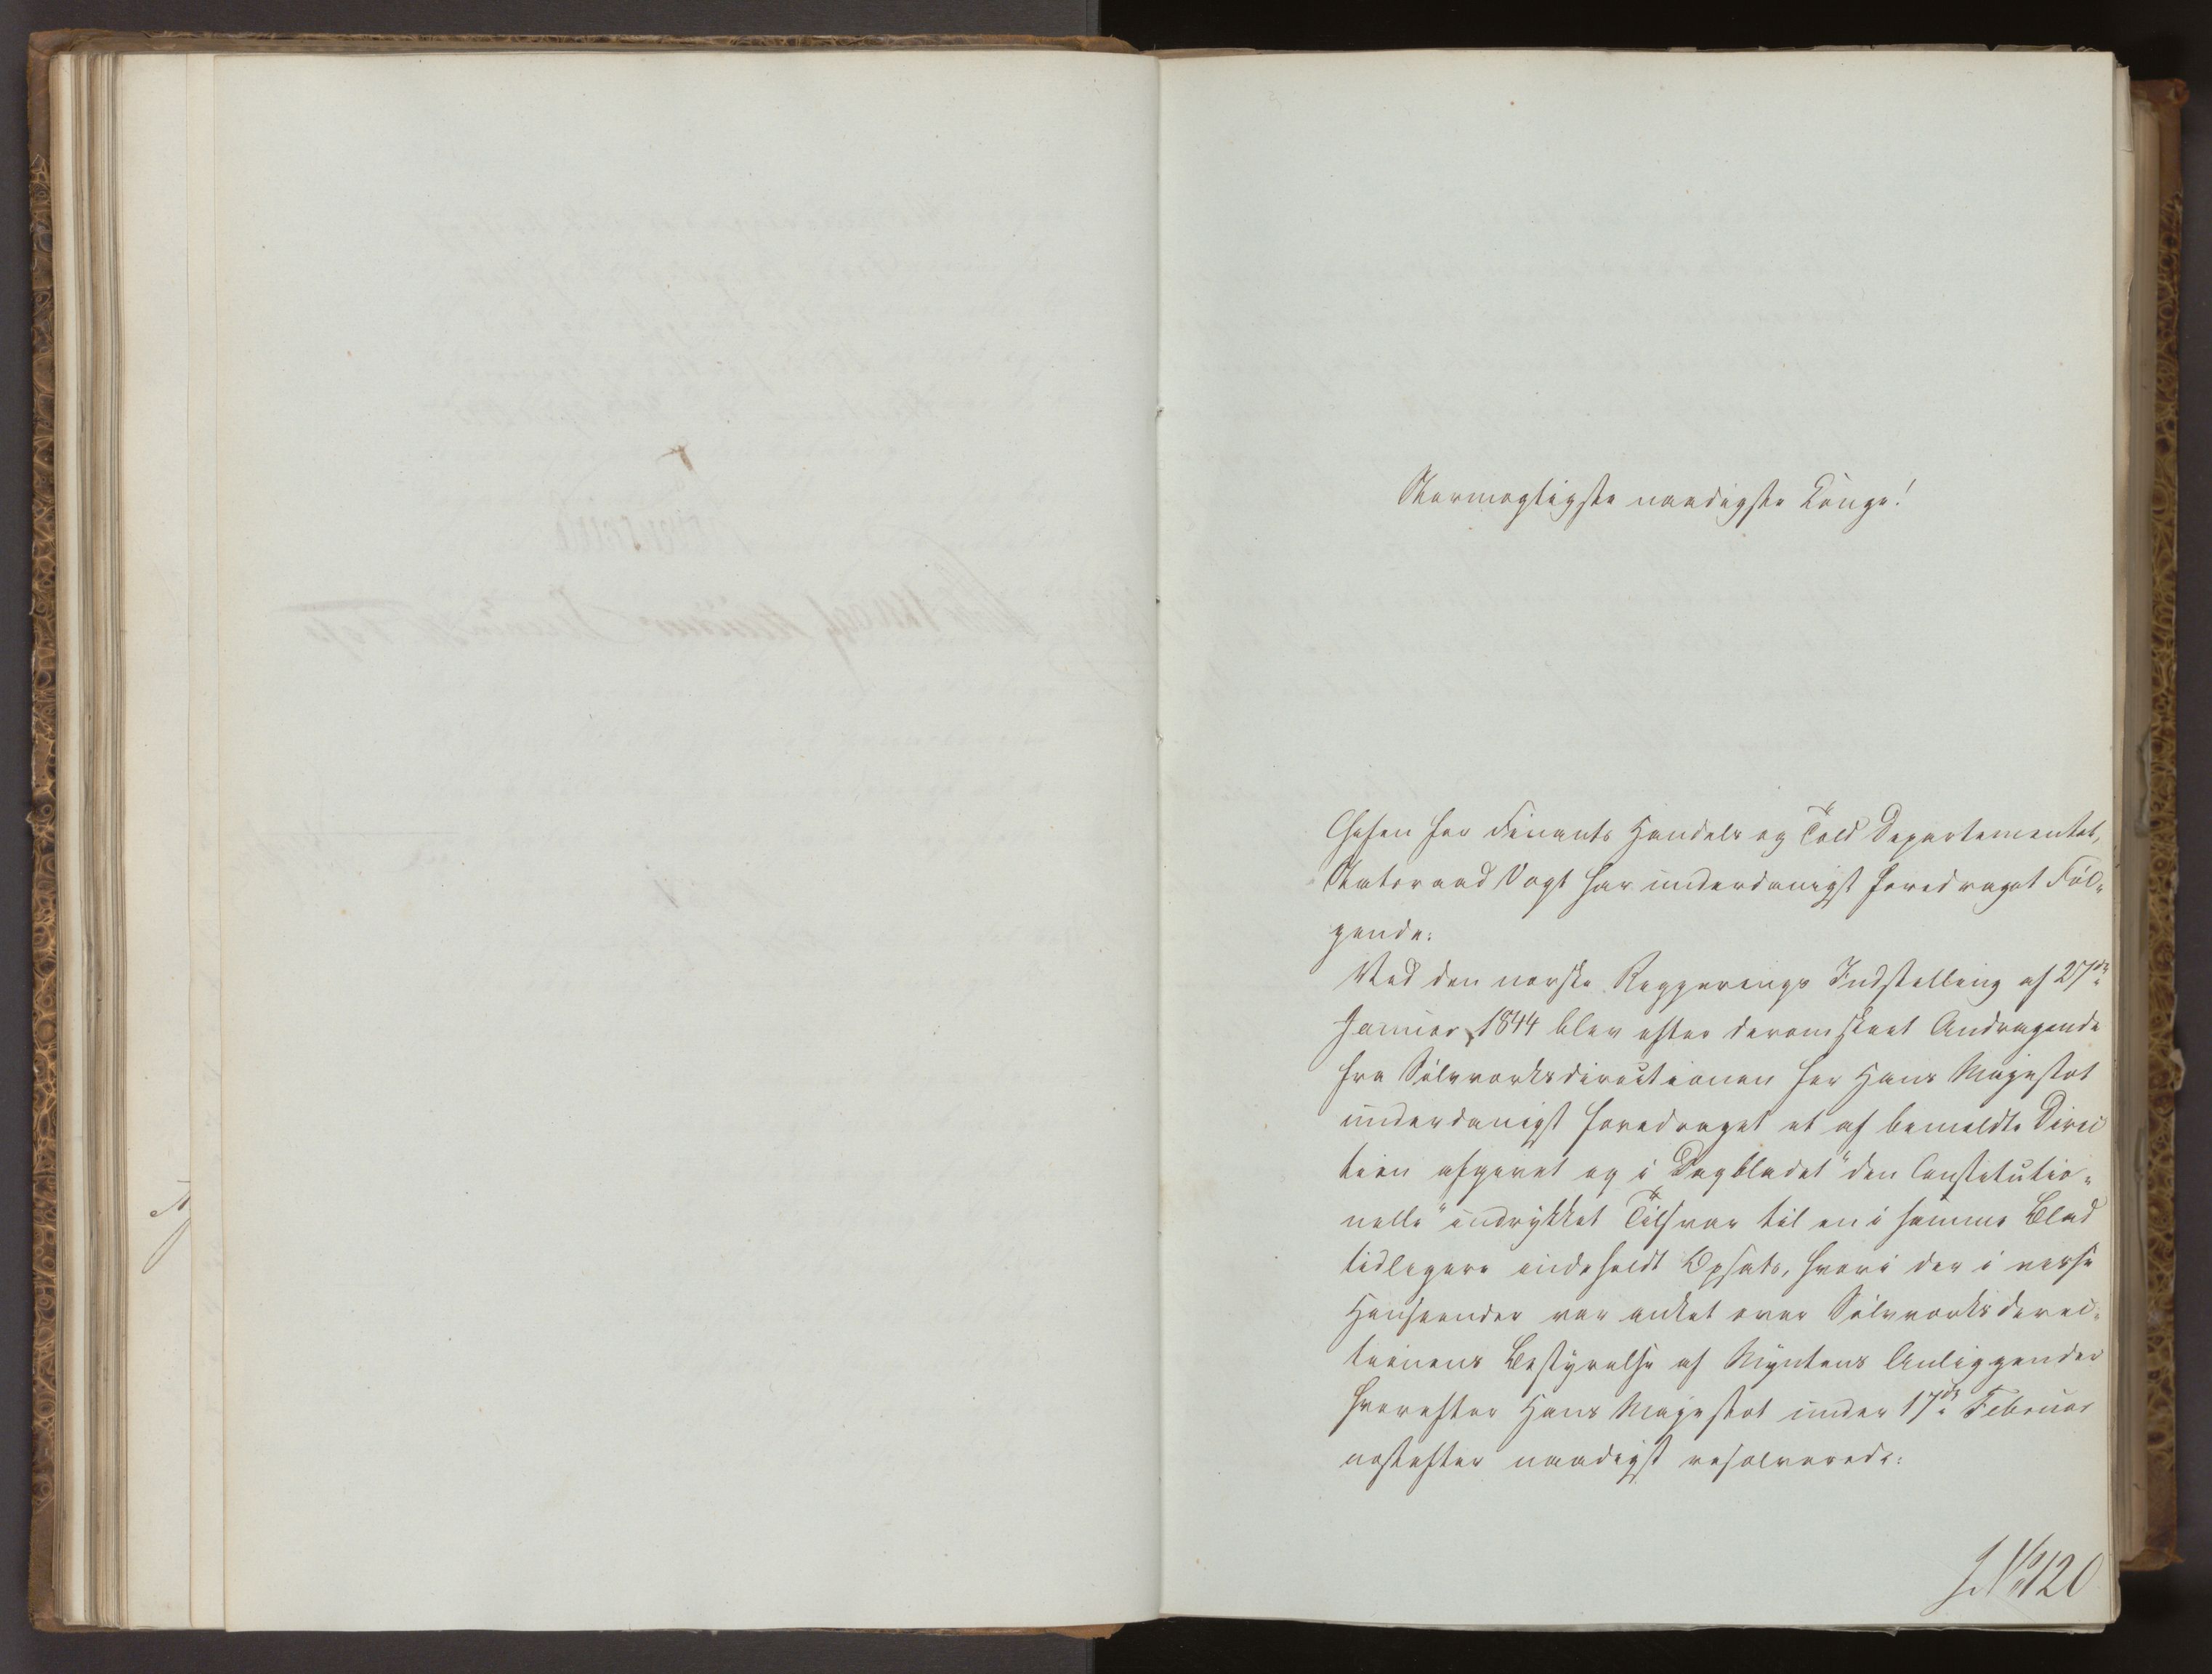 Stormægtigste naadigste Konge!
Chefen for Finants Handels og Told Departementet,
Statsraad Vogt har underdanigst foredraget Føl-
gende:
Ved den norske Regjerings Indstilling af 27de
Januar 1844 blev efter derom skeet Andragende
fra Sølvværksdirectionen for Hans Majestæt
underdanigst foredraget et af bemeldte Direc
tion afgivet og i Dagbladet "den Constitutio-
nelle" indrykket Tilsvar til en i samme Blad
tidligere indeholdt Opsats, hvori der i visse
Henseender var anket over Sølvværksdirec-
tionens Bestyrelse af Myntens Anliggender
hvorefter Hans Majestæt under 17de Februar
næstefter naadigst resolverede:
J. No 120